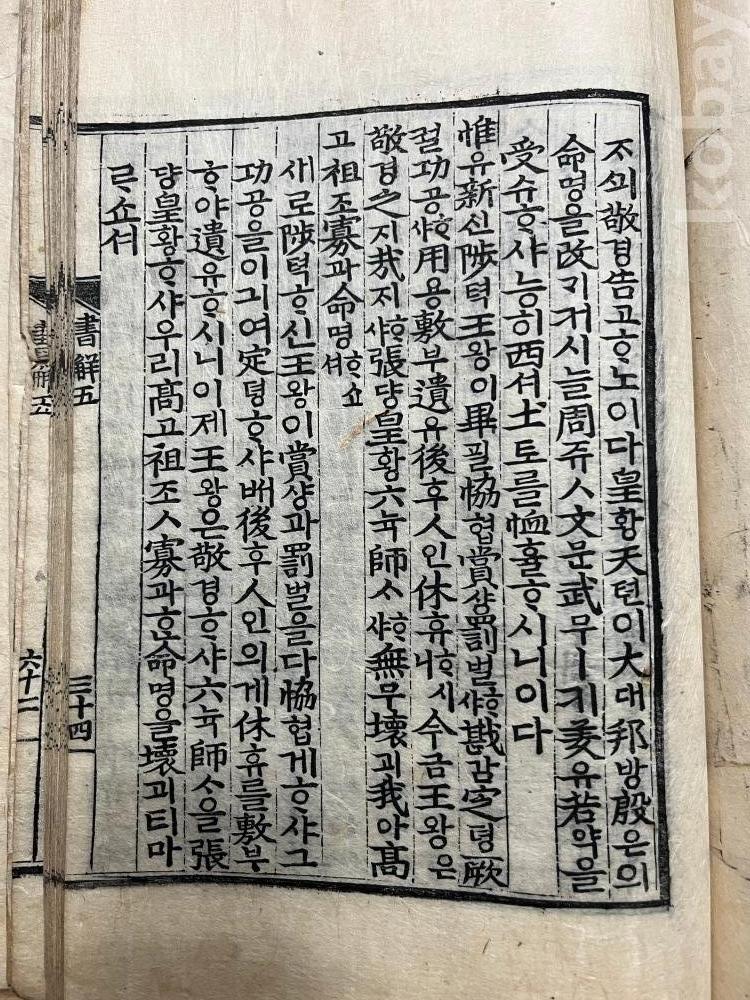 ᄌᆞᄭᅴ敬경告고ᄒᆞ노이다皇황天텬이大대邦방殷은의
命명을改ᄀᆡ거시ᄂᆞᆯ周쥬ㅅ文문武무ㅣ키羑유若약을
受슈ᄒᆞ샤능히西셔土토를恤휼ᄒᆞ시니이다
惟유新신陟텩王왕이畢필協협賞샹罰벌ᄒᆞ샤戡감定뎡厥
궐功공ᄒᆞ샤用용敷부遺유後후人인休휴ᄒᆞ시니今금王왕은
敬경之지哉ᄌᆡᄒᆞ샤張댱皇황六뉵師ᄉᆞᄒᆞ샤無무壞괴我아高
고祖조寡과命명ᄒᆞ쇼셔
새로陟텩ᄒᆞ신王왕이賞샹과罰벌을다協협게ᄒᆞ샤그
功공을이긔여定뎡ᄒᆞ샤ᄡᅥ後후人인의게休휴를敷부
ᄒᆞ야遺유ᄒᆞ시니이제王왕은敬경ᄒᆞ샤六뉵師ᄉᆞ을張
댱皇황ᄒᆞ샤우리高고祖조ㅅ寡과ᄒᆞᆫ命명을壞괴티마
ᄅᆞ쇼셔
書解五 三十四
書解五 六十二
kobay